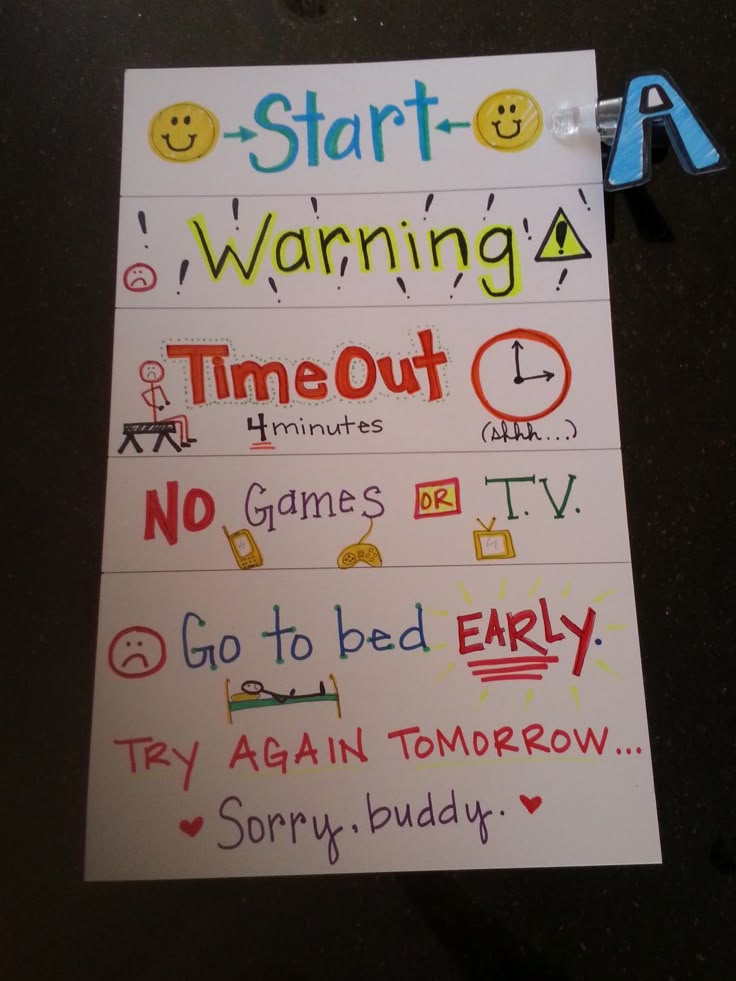 Start
A
Warning
Time Out
4 minutes
(shhh...)
NO Games OR T.V.
Go to bed EARLY.
TRY AGAIN TOMORROW...
Sorry, buddy.